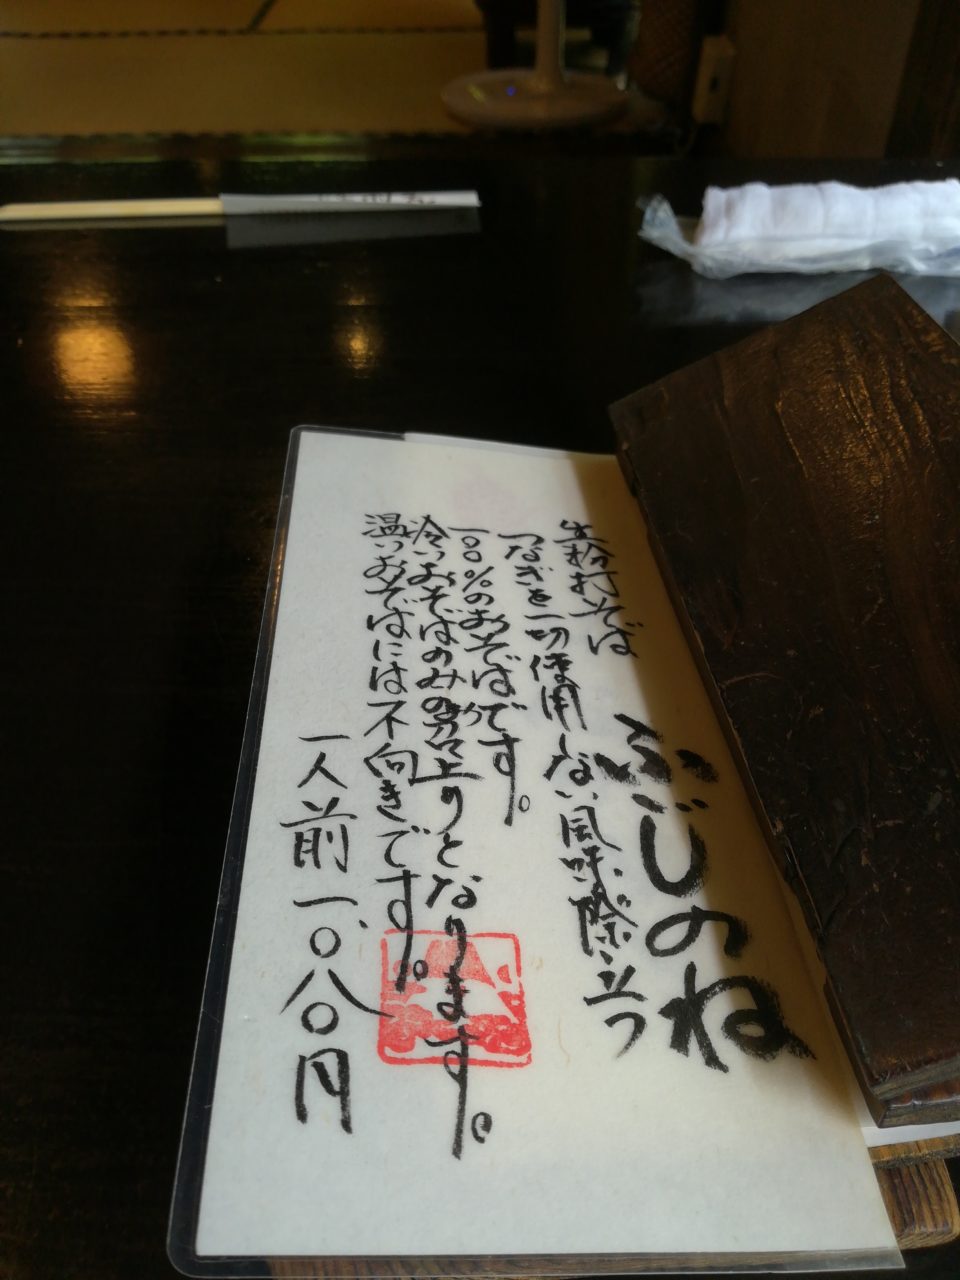 生粉打そば
ふじのね
つなぎを一切使用しない風味際立つ
一〇〇%のおそばです。
冷いおそばのみの召し上りとなります。
温いおそばには不向きです。
一人前 一、〇八〇円